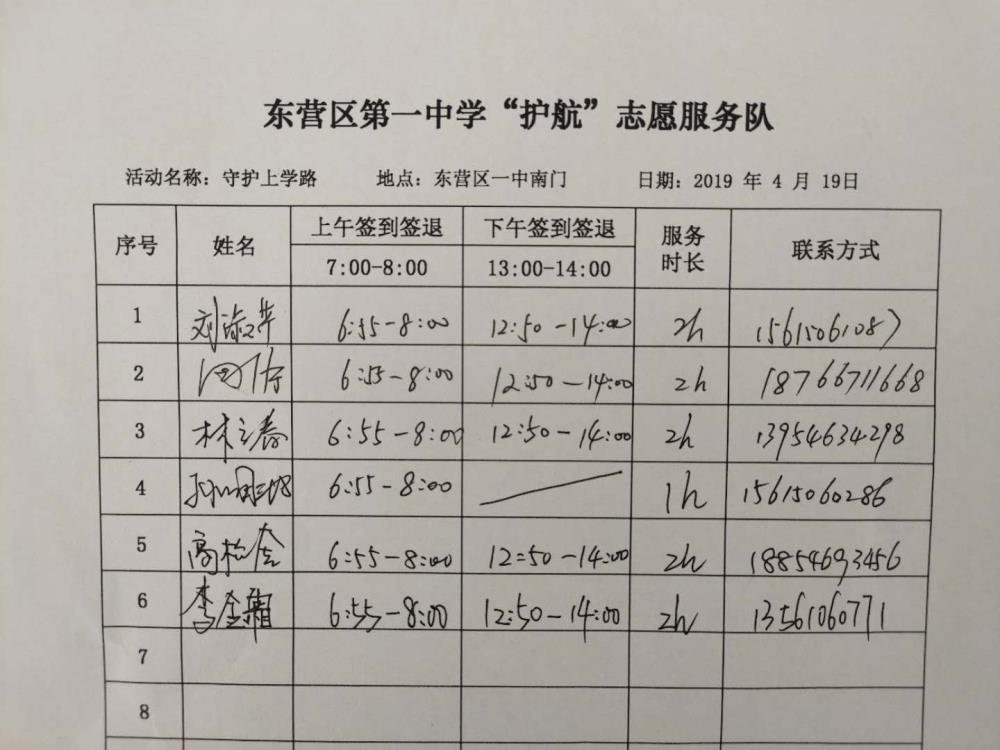 东营区第一中学“护航”志愿服务队
活动名称：守护上学路 地点：东营区一中南门 日期：2019 年 4 月 19日
序号 姓名 上午签到签退 下午签到签退 服务时长 联系方式
7:00-8:00 13:00-14:00
1 刘淑华 6:55-8:00 12:50-14:00 2h 15615061087
2 6:55-8:00 12:50-14:00 2h 18766711668
3 林立春 6:55-8:00 12:50-14:00 2h 13954634298
4 6:55-8:00 1h 15615060286
5 高松 6:55-8:00 12:50-14:00 2h 18854693456
6 李金霜 6:55-8:00 12:50-14:00 2h 13561060771
7
8